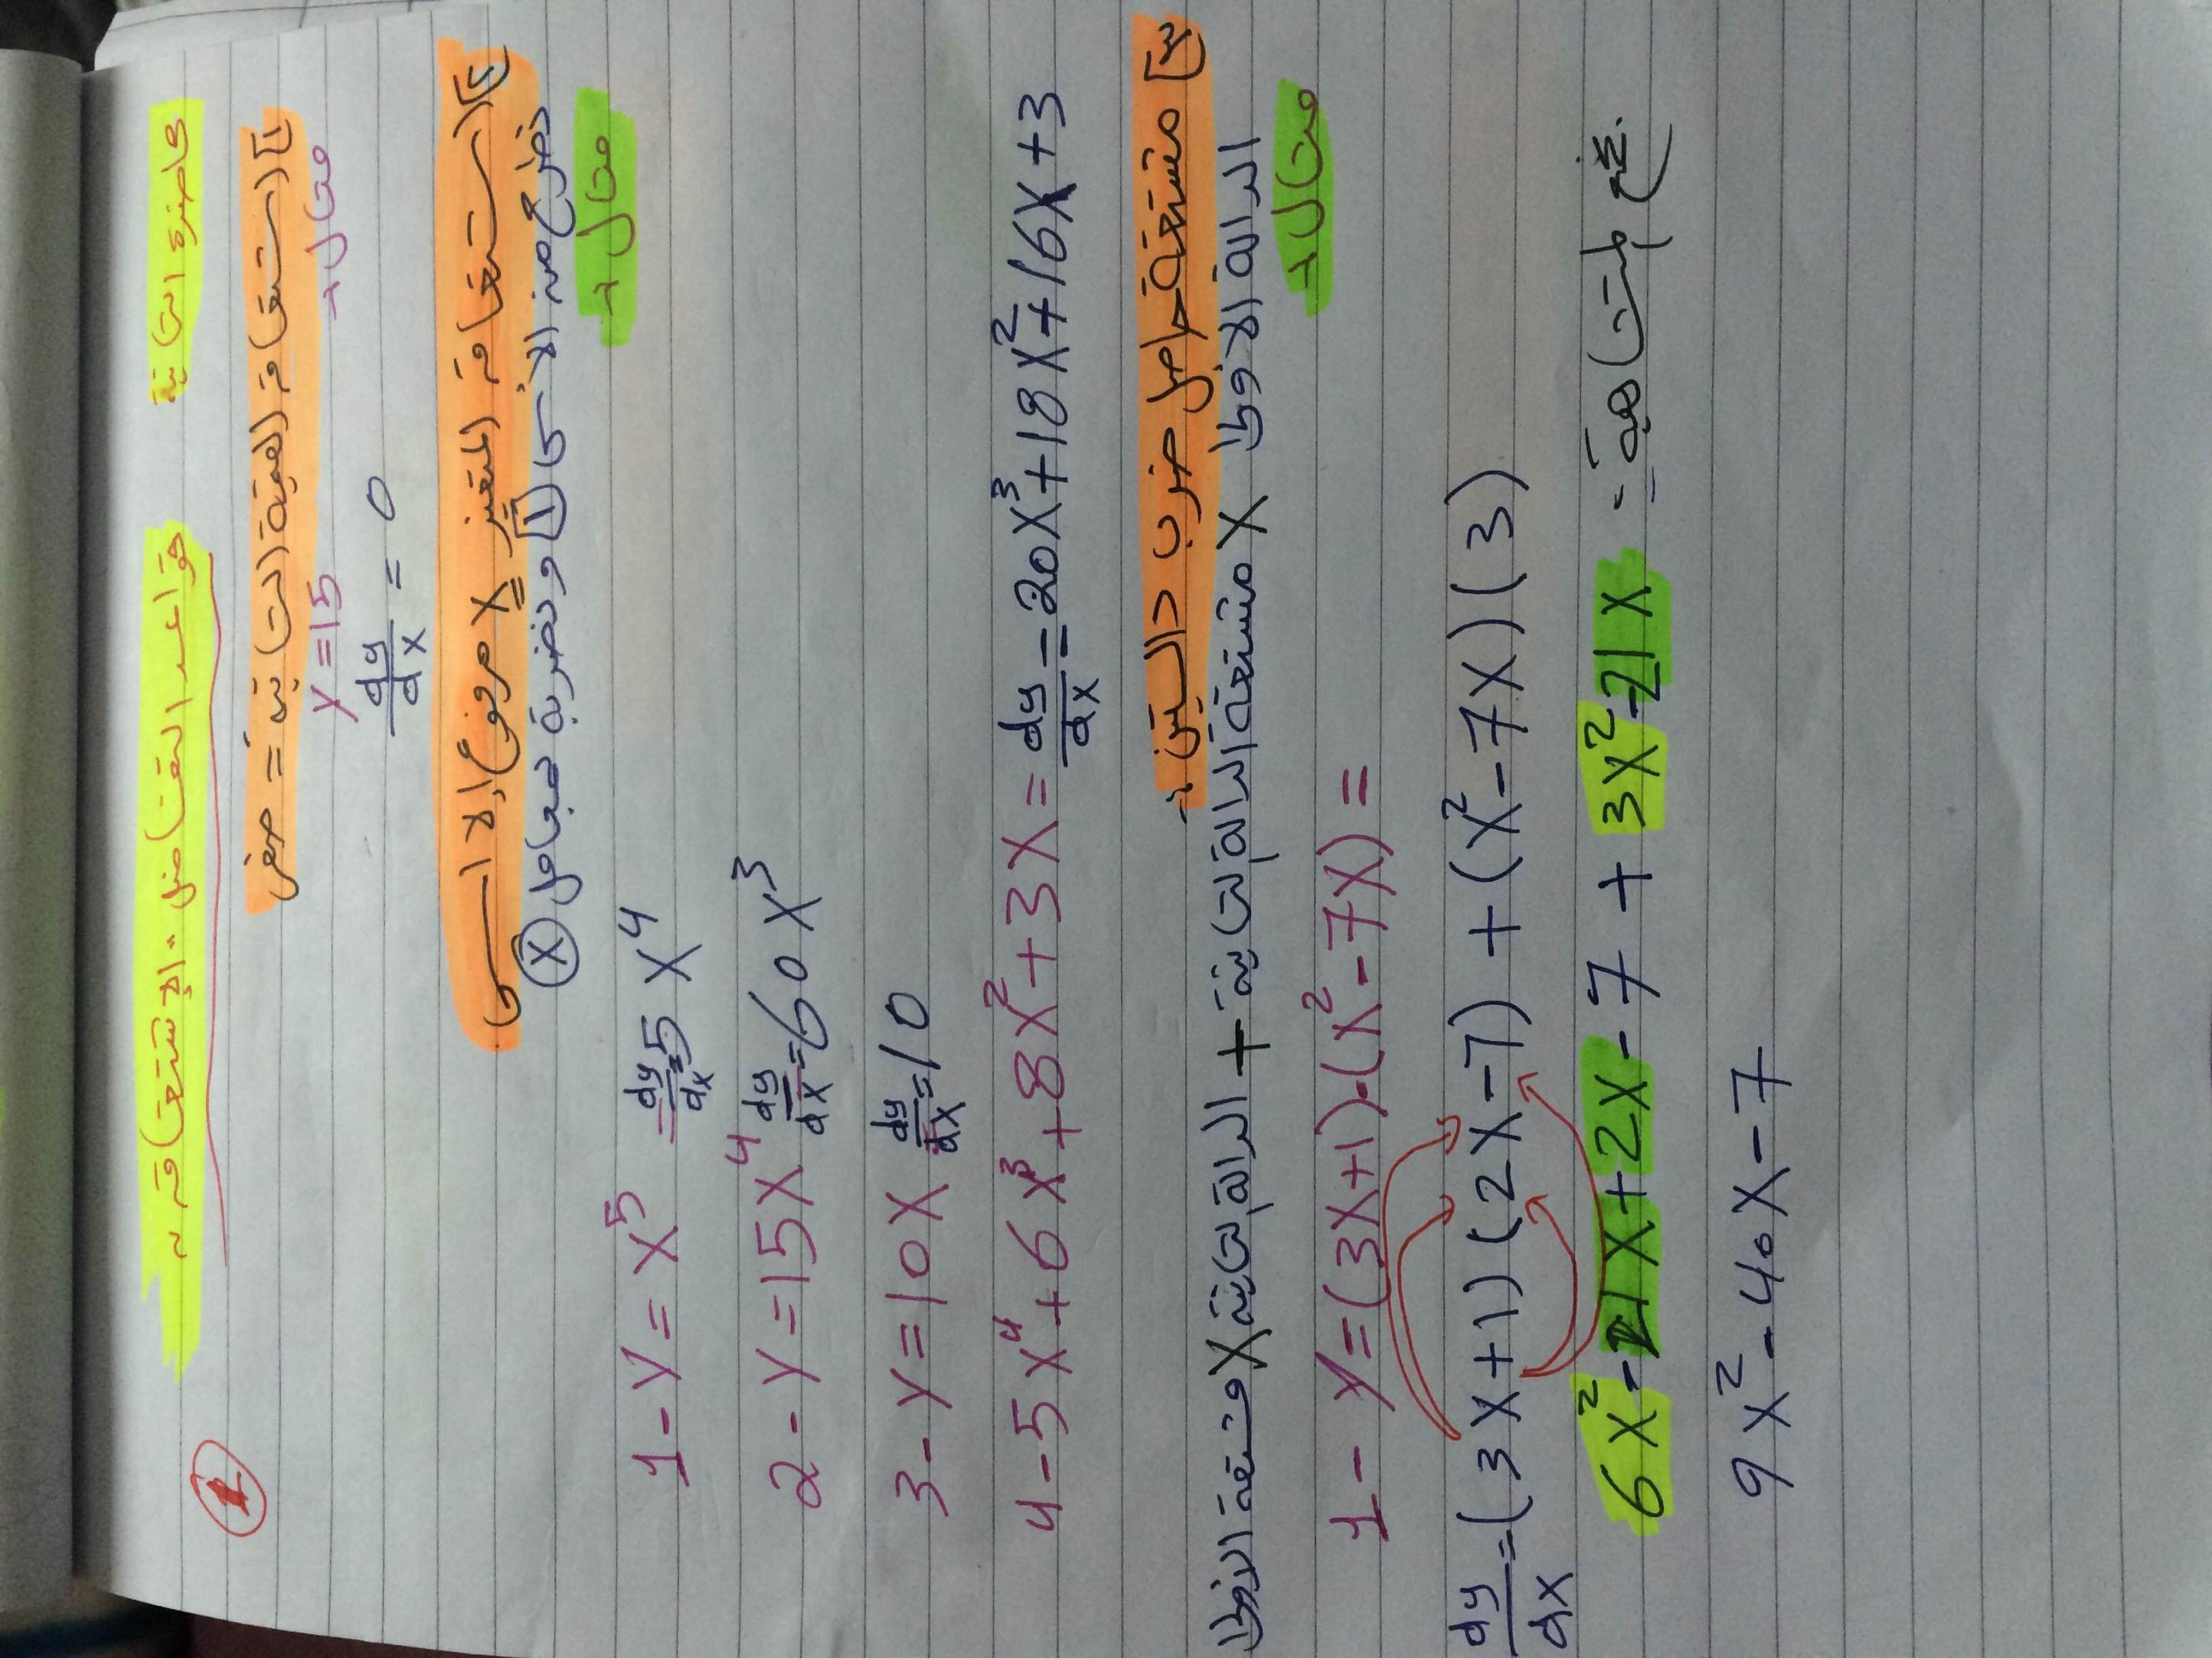 محاضرة الثانية
قواعد التفاضل "الإشتقاق"
1
1] إشتقاق القيمة الثابتة = صفر
مثال
y = 15
dy/dx = 0
2] إشتقاق المتغير x مرفوع إلى الأس
نطرح من الأس 1 ونضربة بمعامل (x)
مثال
1- y = x⁵ = dy/dx = 5x⁴
2- y = 15x⁴ dy/dx = 60x³
3- y = 10x dy/dx = 10
4- 5x⁴ + 6x³ + 8x² + 3x = dy/dx = 20x³ + 18x² + 16x + 3
3] مشتقة حاصل ضرب دالتين :-
الدالة الاولى X مشتقة الدالة الثانية + الدالة الثانية X مشتقة الاولى
مثال
1- y = (3x+1)·(x²-7x) =
dy/dx = (3x+1)(2x-7) + (x²-7x)(3)
6x² - 21x + 2x - 7 + 3x² - 21x =
9x² - 40x - 7